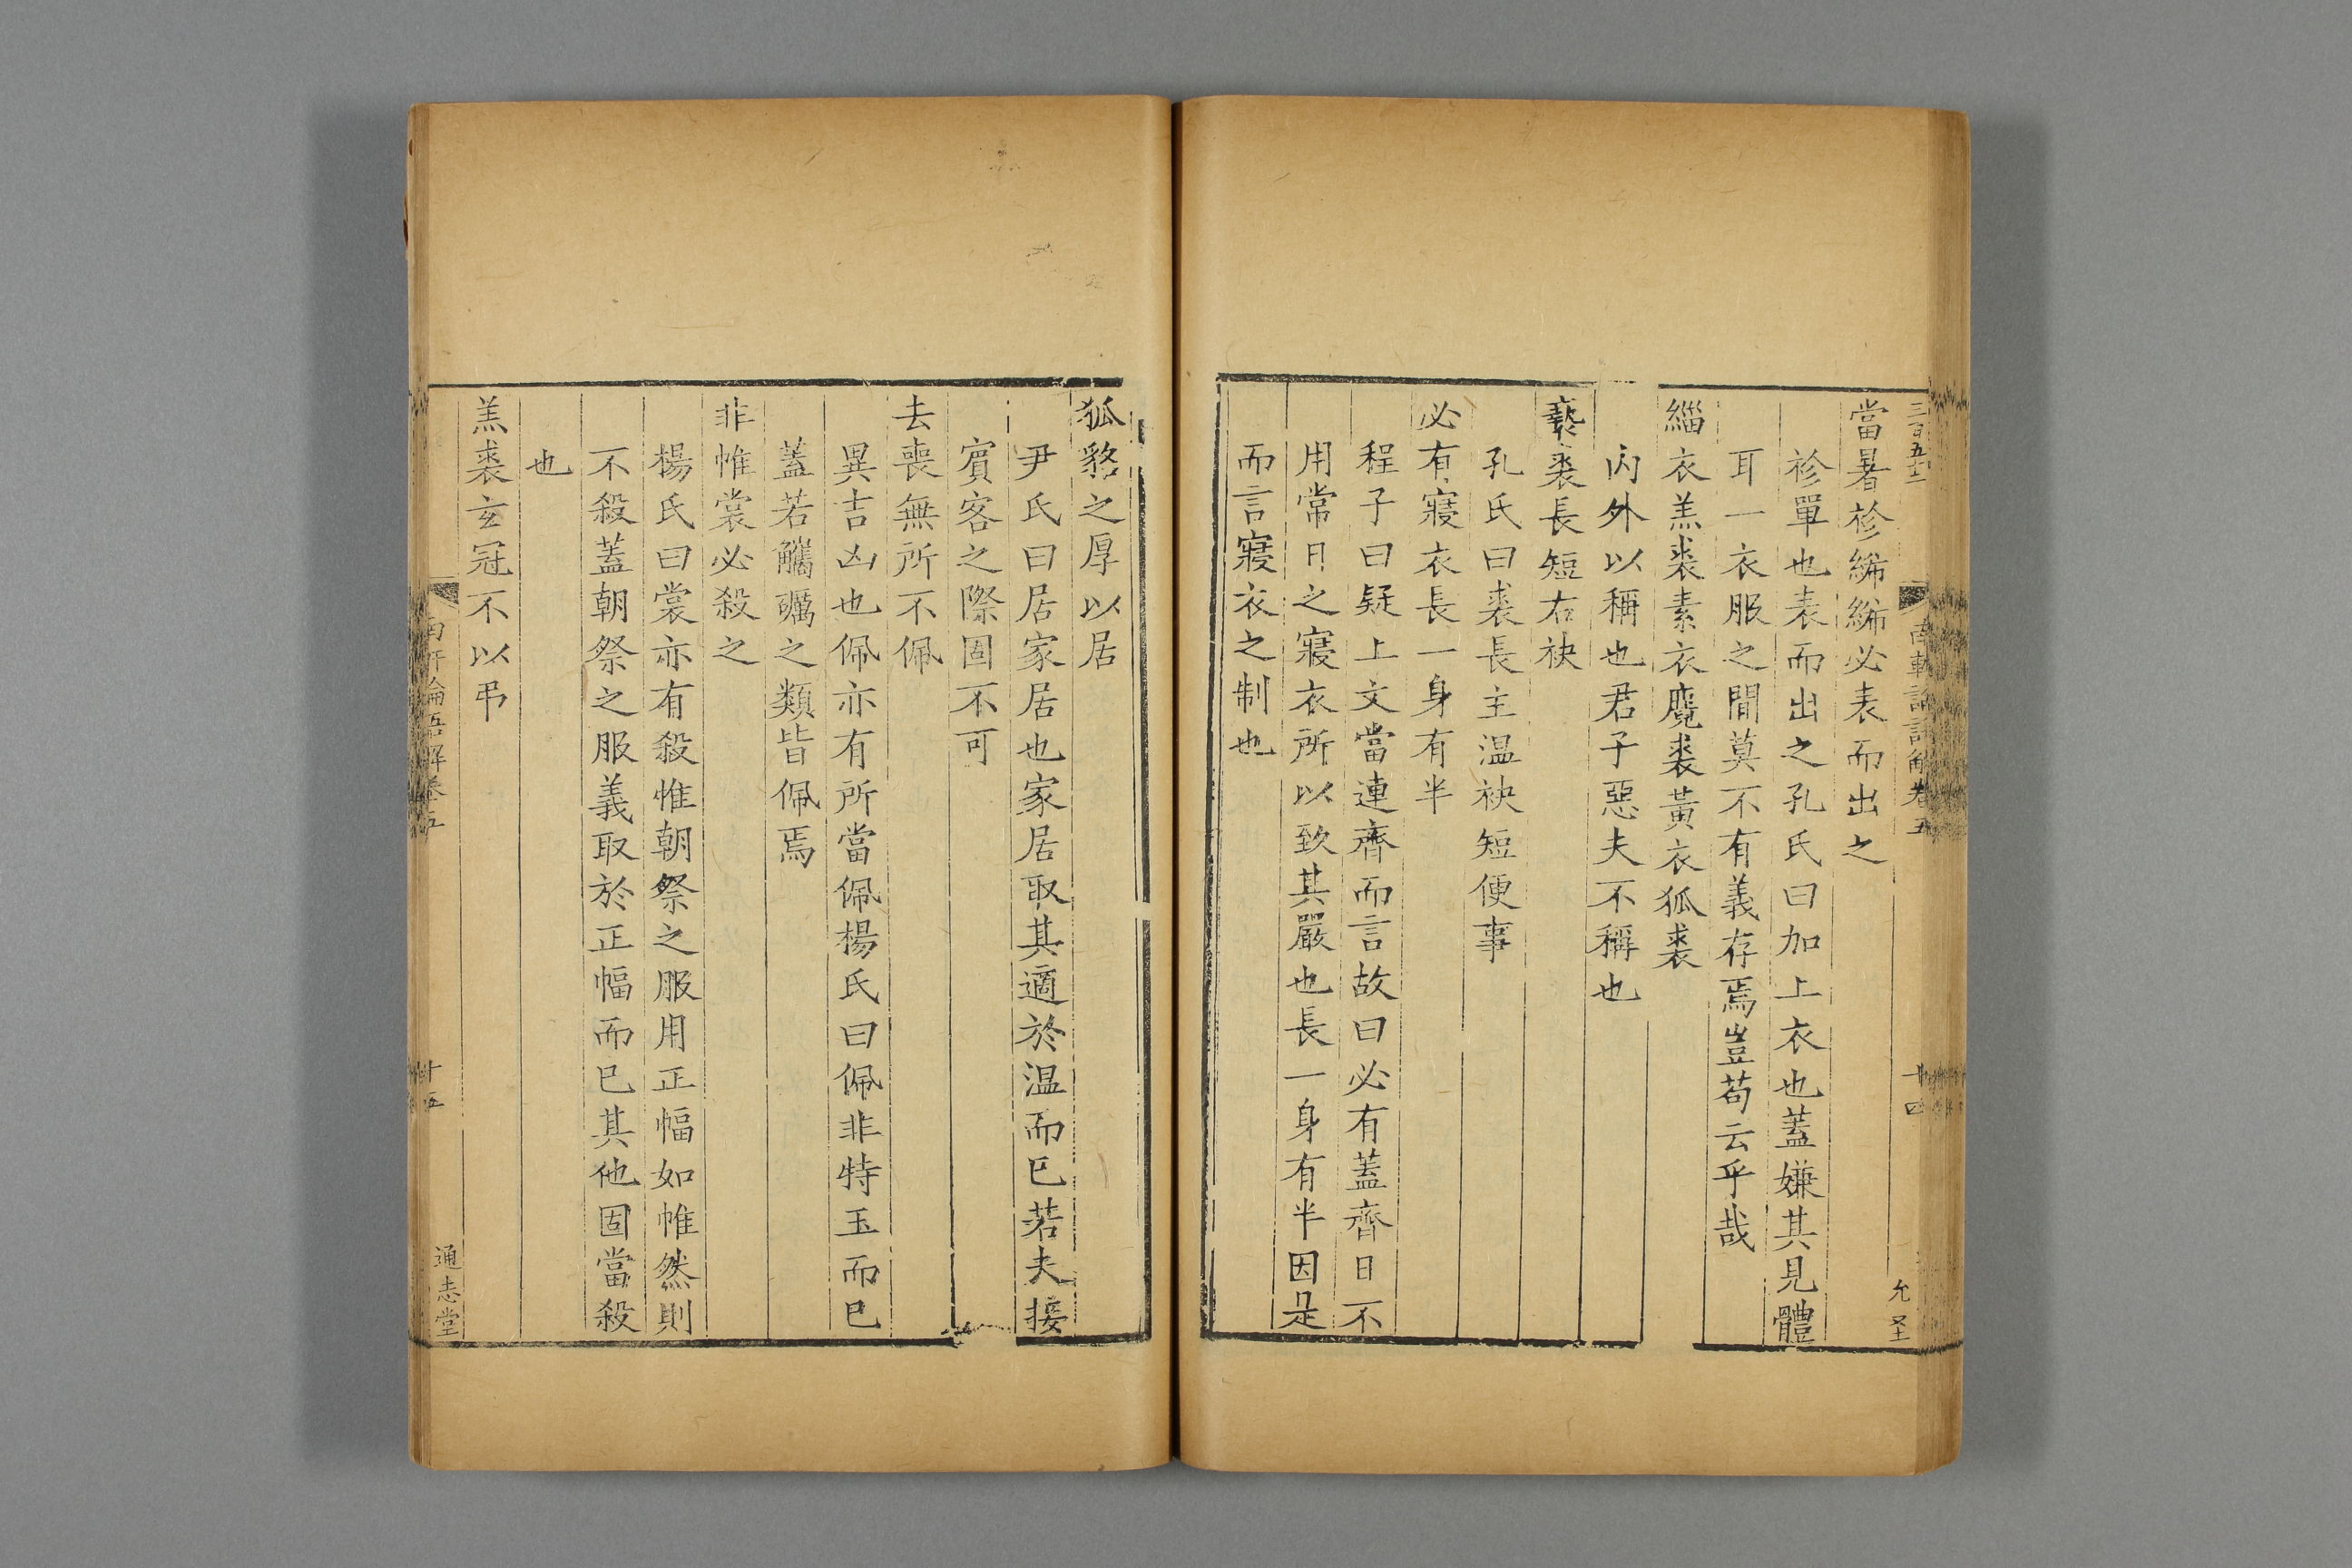 當暑袗絺綌必表而出之
袗單也表而出之孔氏曰加上衣也蓋嫌其見體
耳一衣服之間莫不有義存焉豈苟云乎哉
緇衣羔裘素衣麑裘黃衣狐裘
內外以稱也君子惡夫不稱也
褻裘長短右袂
孔氏曰裘長主温袂短便事
必有寢衣長一身有半
程子曰疑上文當連齊而言故曰必有蓋齊日不
用常日之寢衣所以致其嚴也長一身有半因是
而言寢衣之制也
狐貉之厚以居
尹氏曰居家居也家居取其適於温而已若夫接
賓客之際固不可
去喪無所不佩
異吉凶也佩亦有所當佩楊氏曰佩非特玉而已
蓋若觿礪之類皆佩焉
非帷裳必殺之
楊氏曰裳亦有殺惟朝祭之服用正幅如帷然則
不殺蓋朝祭之服義取於正幅而已其他固當殺
也
羔裘玄冠不以弔
南軒論語解卷五
十四
南軒論語解卷五
十五
通志堂